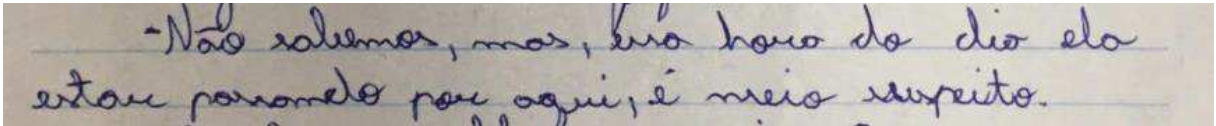 -Não sabemos, mas, essa hora do dia ela
estar passando por aqui, é meio suspeito.